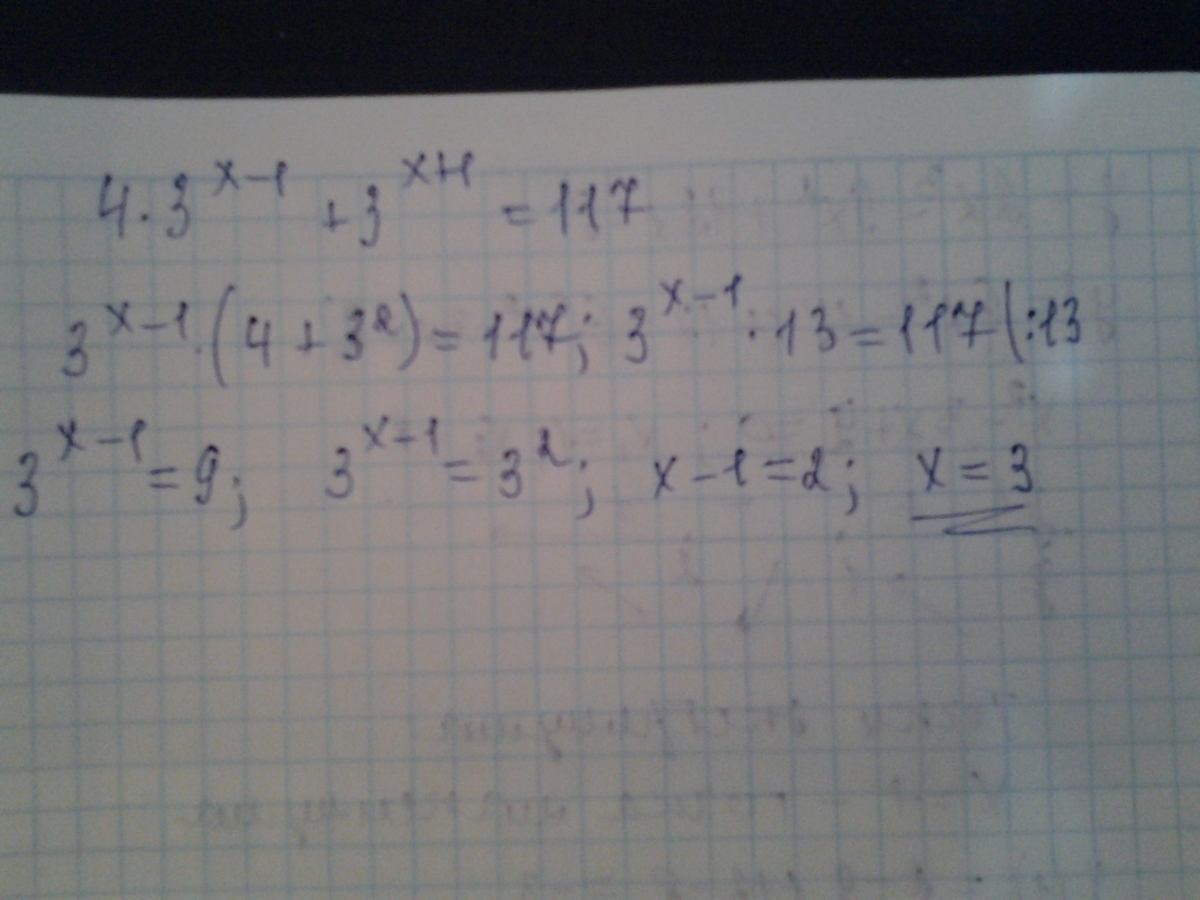 4·3^{x-1} + 3^{x+1} = 117
3^{x-1}·(4 + 3^2) = 117; 3^{x-1}·13 = 117 |:13
3^{x-1} = 9; 3^{x-1} = 3^2; x-1 = 2; x = 3